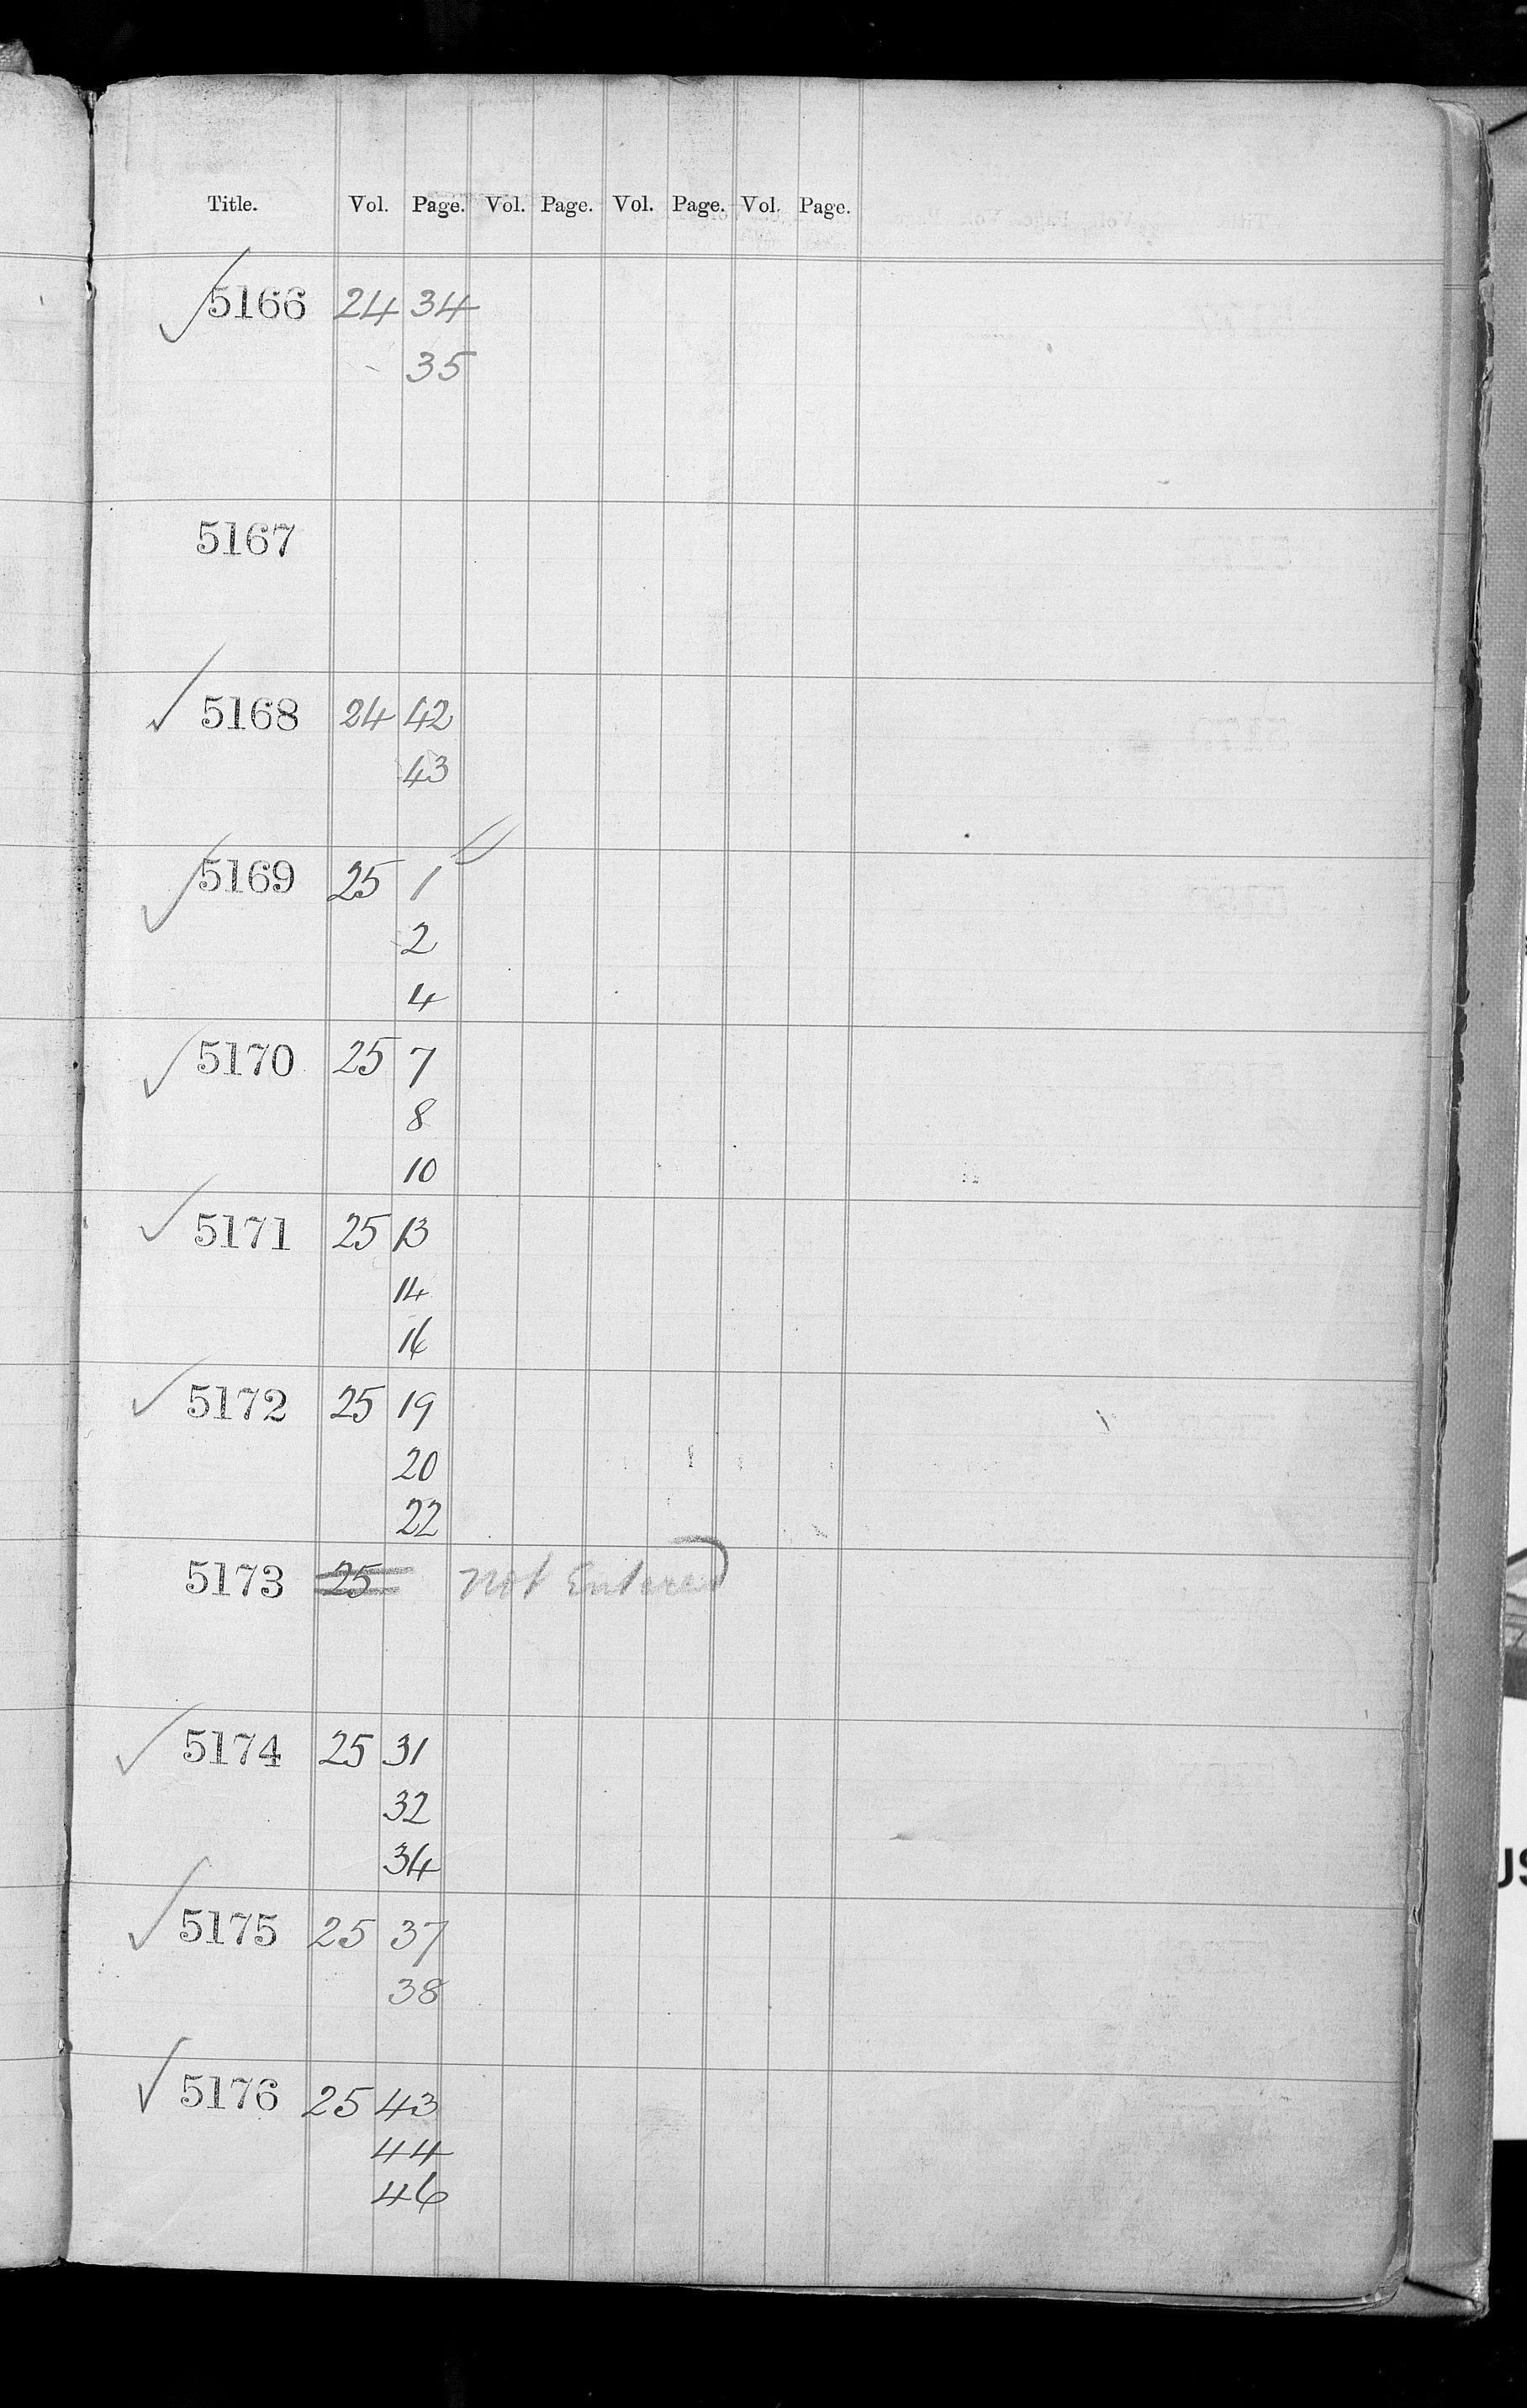 Title. Vol. Page. Vol. Page. Vol. Page. Vol. Page.
✓ 5166 24 34
35
5167
✓ 5168 24 42
43
✓ 5169 25 1
2
4
✓ 5170 25 7
8
10
✓ 5171 25 13
14
16
✓ 5172 25 19
20
22
5173 25 Not Entered
✓ 5174 25 31
32
34
✓ 5175 25 37
38
✓ 5176 25 43
44
46
US